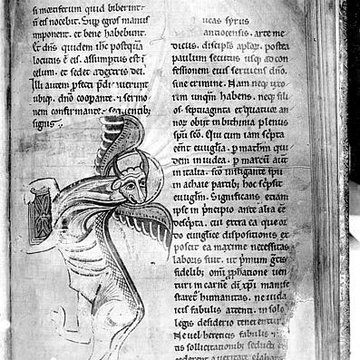 si mortiferum quid biberint
eis nocebit. Sup egros manus
imponent. et bene habebunt.
Et dns quidem ihc postqua
locutus e eis. assumptus est i
celum. et sedet adextris dei.
Illi autem pfecti pdicauerunt
ubiq. dno cooperante. et sermo
nem confirmante. sequentib;
signis.
ucas syrus
antiocensis. arte me
dicus. discipls aplor. postea
paulum secutus usq; ad con
fessionem eius seruiens dno.
sine crimine. Nam neq; uxo
rem unqm habens. neq; fili
os. septuaginta et quatuor an
nor obiit in bithinia plenus
spu sco. Qui cum iam scpta
eent euuglia. p matheu qui
dem in iudea. p marcu aut
in italia. sco instigante spu
in achaie partib; hoc scpsit
euuglm. Significans etiam
ipse in pncipio ante alia ee
descpta. cui extra ea que or
do euuglice dispositionis ex
poscit ea maxime necessitas
laboris fuit. ut pmum grecis
fidelib; omi pphatione ven
turi in carne di xpi manife
stata humanitas. ne iuda
icis fabulis attenti. in solo
legis desiderio tenerentur.
Ne uel hereticis fabulis. et stul
tis sollicitationib; seducti ex
ciderent a ueritate elabora